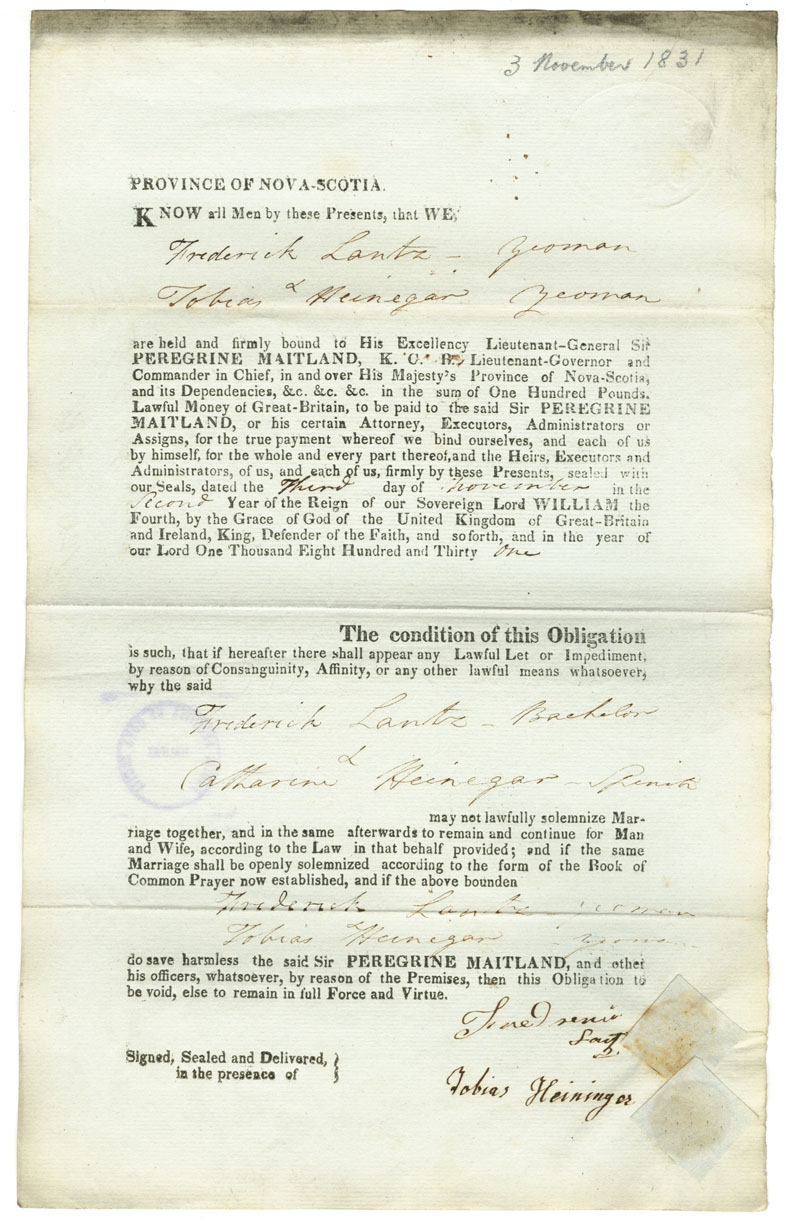 3 November 1831
PROVINCE OF NOVA-SCOTIA.
KNOW all Men by these Presents, that WE,
Frederick Lantz - Yeoman
&
Tobias Heinegar Yeoman
are held and firmly bound to His Excellency Lieutenant-General Sir
PEREGRINE MAITLAND, K. C. B., Lieutenant-Governor and
Commander in Chief, in and over His Majesty's Province of Nova-Scotia,
and its Dependencies, &c. &c. &c. in the sum of One Hundred Pounds.
Lawful Money of Great-Britain, to be paid to the said Sir PEREGRINE
MAITLAND, or his certain Attorney, Executors, Administrators or
Assigns, for the true payment whereof we bind ourselves, and each of us
by himself, for the whole and every part thereof, and the Heirs, Executors and
Administrators, of us, and each of us, firmly by these Presents, sealed with
our Seals, dated the Third day of November in the
Second Year of the Reign of our Sovereign Lord WILLIAM the
Fourth, by the Grace of God of the United Kingdom of Great-Britain
and Ireland, King, Defender of the Faith, and soforth, and in the year of
our Lord One Thousand Eight Hundred and Thirty One
The condition of this Obligation
is such, that if hereafter there shall appear any Lawful Let or Impediment,
by reason of Consanguinity, Affinity, or any other lawful means whatsoever,
why the said
Frederick Lantz - Bachelor
&
Catharine Heinegar - Spinst
may not lawfully solemnize Mar-
riage together, and in the same afterwards to remain and continue for Man
and Wife, according to the Law in that behalf provided; and if the same
Marriage shall be openly solemnized according to the form of the Book of
Common Prayer now established, and if the above bounden
Frederick Lantz - yeoman
Tobias Heinegar - yeoman
do save harmless the said Sir PEREGRINE MAITLAND, and other
his officers, whatsoever, by reason of the Premises, then this Obligation to
be void, else to remain in full Force and Virtue.
Signed, Sealed and Delivered, }
in the presence of }
Tobias Heininger